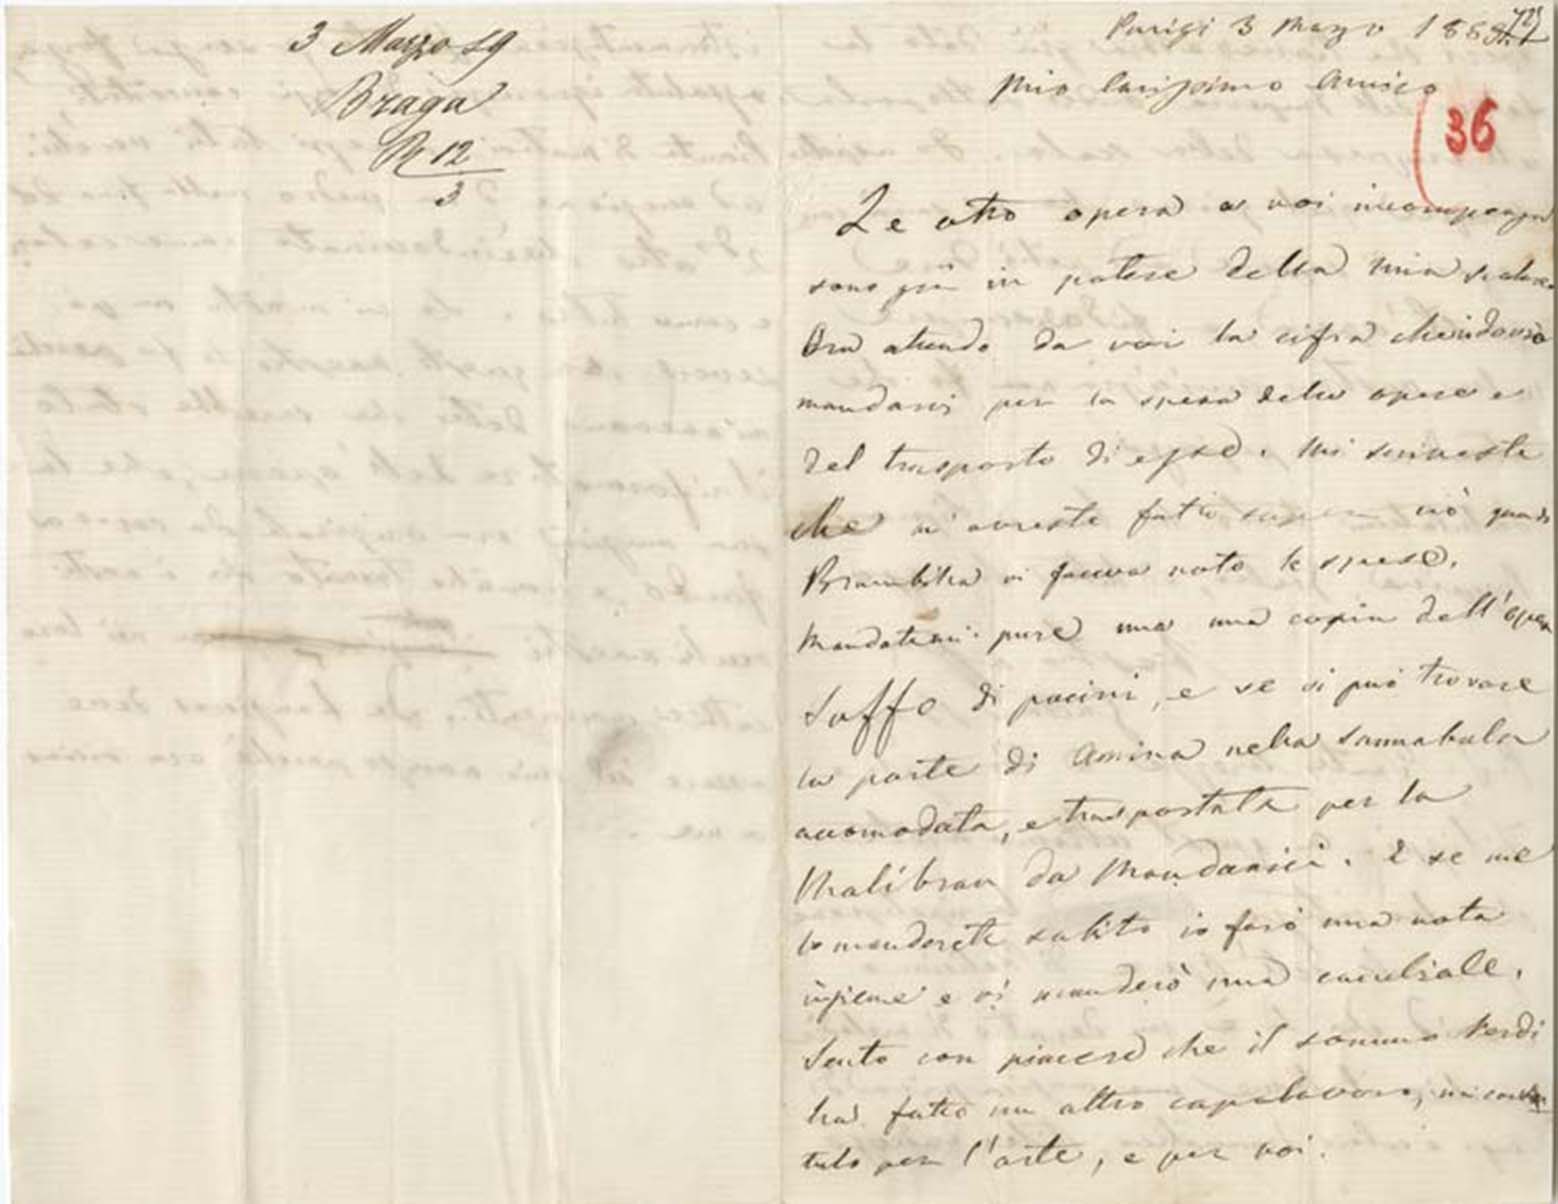 3 Marzo 59
Braga
R 12
3
Parigi 3 Marzo 1859
Mio Carissimo Amico
36
Le otto opere a voi
sono già in potere della mia
Ora attendo da voi la cifra che
mandarvi per la spesa delle opere e
del trasporto di esse. Mi scriveste
che m'avreste fatto saper ciò quando
Brambilla vi faceva noto le spese.
Mandatemi pure una copia dell'opera
Saffo di pacini, e se si può trovare
la parte di Amina nella Sonnabula
accomodata, e trasportata per la
Malibran da Mandanici. E se me
lo manderete subito io farò una nota
insieme e vi manderò una cambiale.
Sento con piacere che il sommo Verdi
ha fatto un altro capolavoro, mi
tulo per l'arte, e per voi.